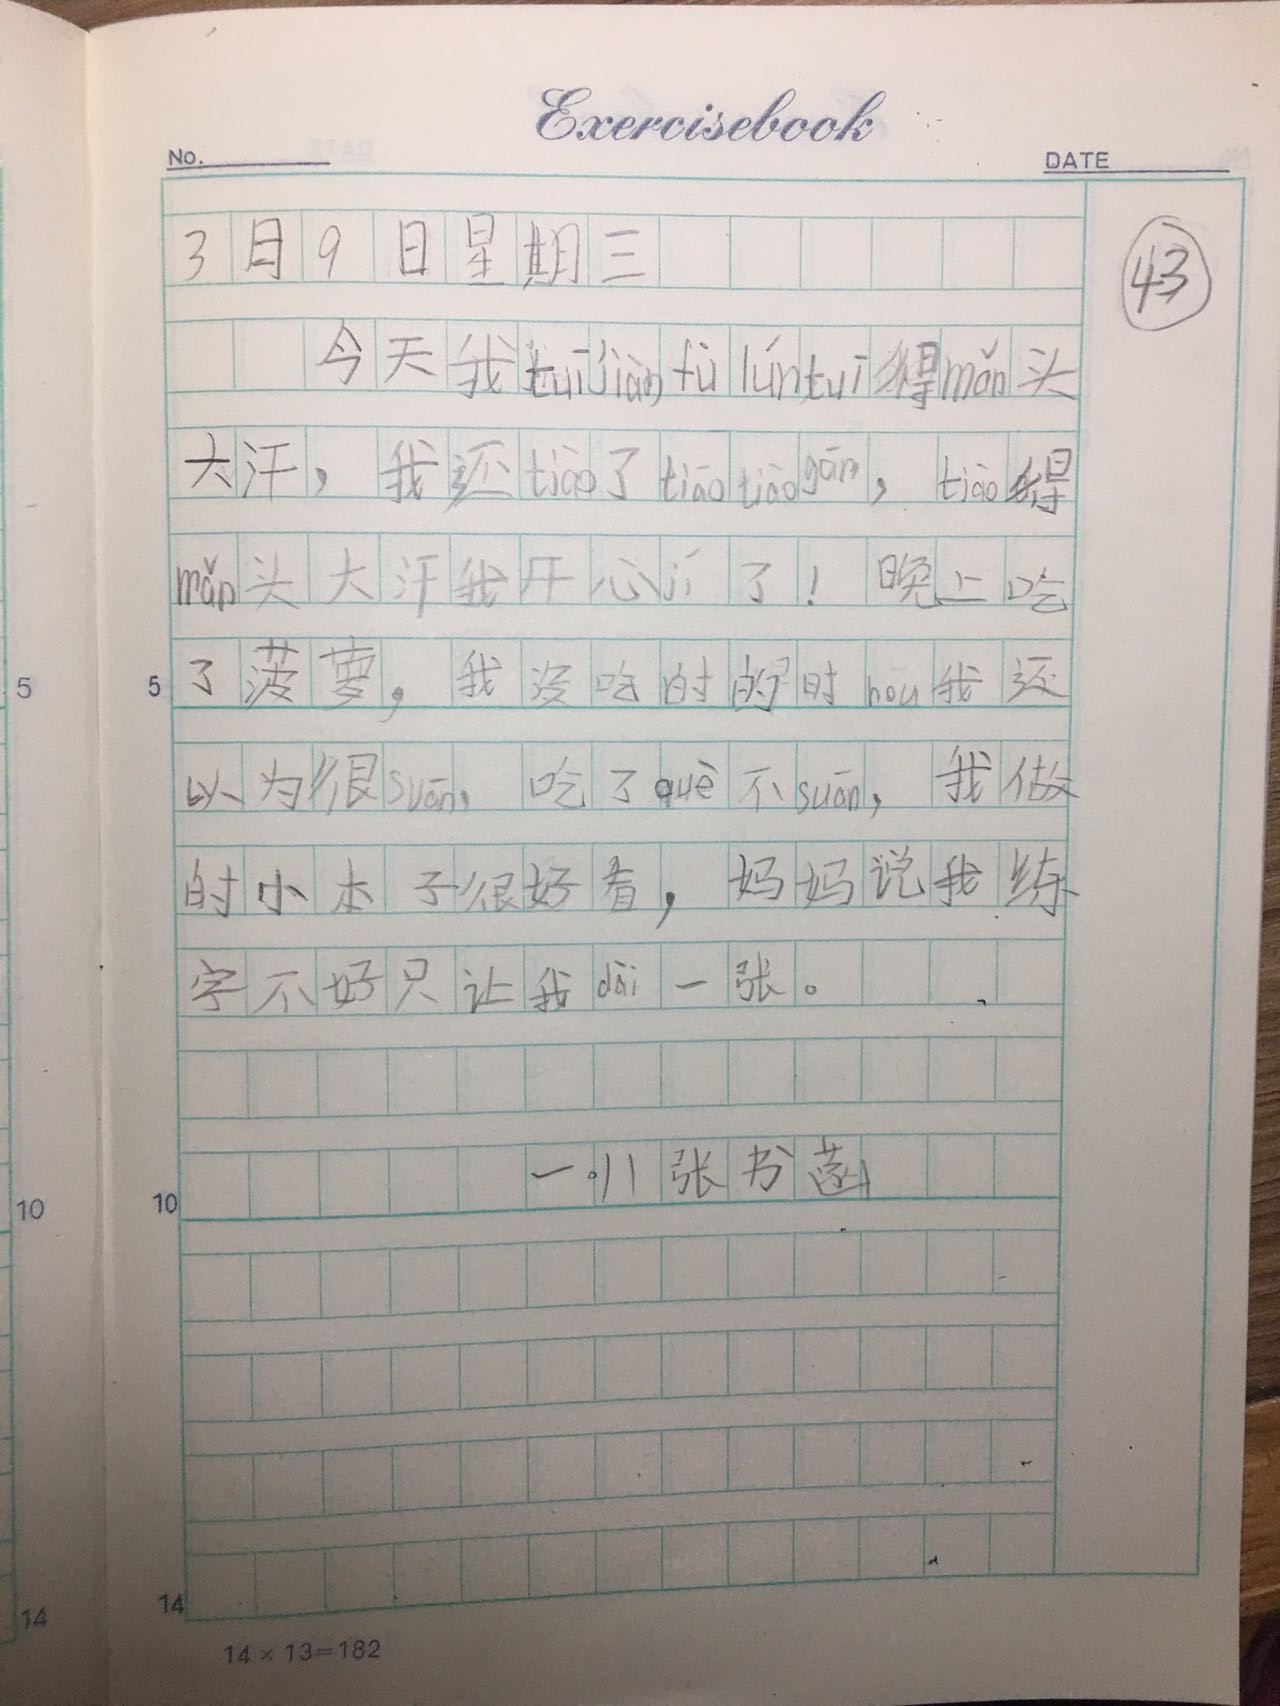 Exercisebook
NO.
DATE
43
3月9日星期三
今天我tuījiàn fù lún tuī得mǎn头
大汗，我还tiào了tiāo tiào gān，tiào得
mǎn头大汗我开心jí了！晚上吃
5 5 了菠萝，我没吃的时的时hou我还
以为很suān，吃了què不suān，我做
的小本子很好看，妈妈说我练
字不好只让我dài一张。
10 10 一·八张书菡
14 14
14×13=182